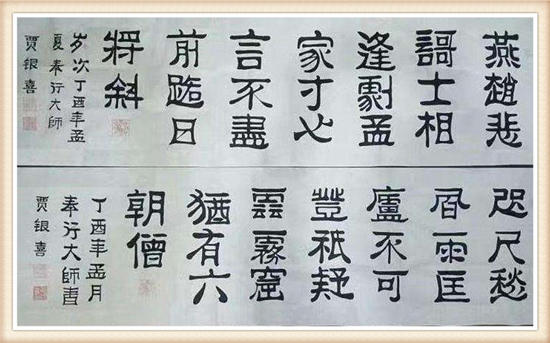 燕趙悲
謌士相
逢劇孟
家寸心
言不盡
前路日
将斜
岁次丁酉年孟
夏奉行大師
贾银喜
咫尺愁
風雨匡
廬不可
登祇疑
雲霧窟
猶有六
朝僧
丁酉年孟月
奉行大師書
贾银喜